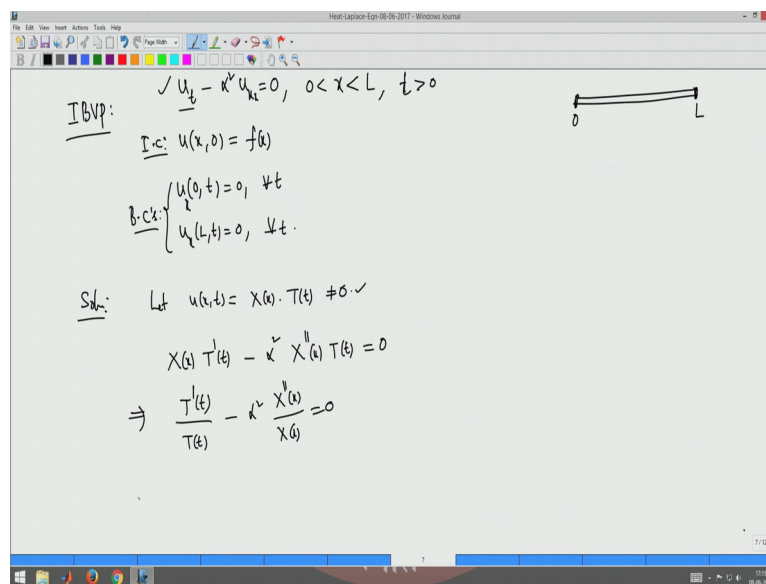 Heat-Laplace-Eqn-08-06-2017 - Windows Journal
File Edit View Insert Actions Tools Help
Page Width
B I
IBVP: ✓ u_t - α² u_xx = 0, 0 < x < L, t > 0
0 L
I.C: u(x,0) = f(x)
B.C's: { u_x(0,t) = 0, ∀t
u_x(L,t) = 0, ∀t.
Soln: Let u(x,t) = X(x) · T(t) ≠ 0. ✓
X(x) T'(t) - α² X''(x) T(t) = 0
⇒ T'(t)/T(t) - α² X''(x)/X(x) = 0
7/12
7